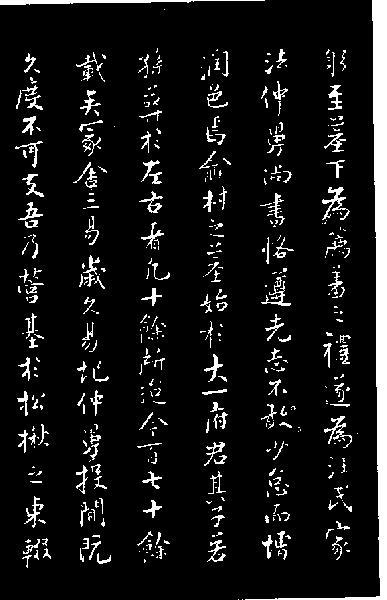 躬至墓下為薦羞之禮遂為汪氏家
法仲舅尚書恪遵先志不敢少怠而增
潤色焉俞村之墓始於大一府君其子若
孫葬於左右者凡十餘所迨今百七十餘
載矣冢舍三易歲久易圮仲舅投閒既
久度不可支吾乃營基於松楸之東輟